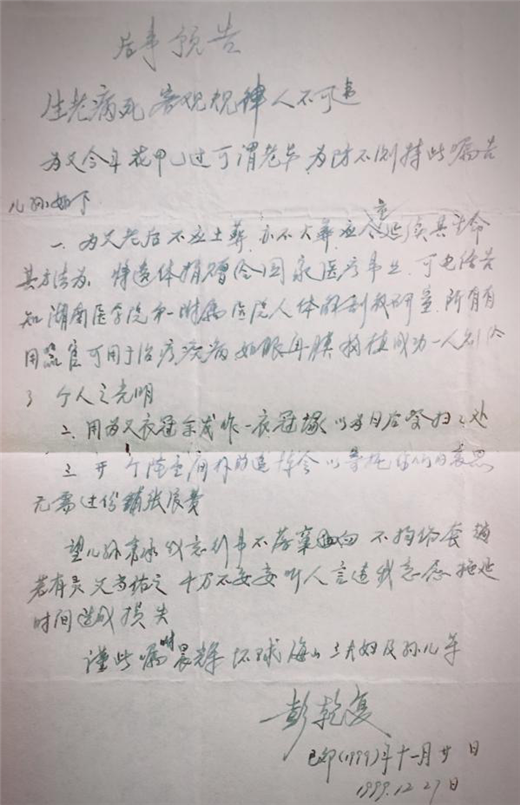 后事预告
生老病死 客观规律 人不可违
为父今年花甲已过可谓老年 为防不测特此嘱告
儿孙如下
一、为父死后不应土葬 亦不火葬 应 延续其生命
其方法为、将遗体捐赠(给)国家医疗事业、可电话告
知湖南医学院第一附属医院人体解剖教研室 所有有
用器官可用于治疗疾病 如眼角膜移植成功一人则给
了 个人之光明
二、用为父衣冠 作一衣冠塚 以为日后祭扫之处
三、开 个 的追悼会 以寄托你们的哀思
无需过份铺张浪费
望儿孙 我志行事不落窠臼 不拘俗套
若有灵 父当佑之 千万不要妄听人言违我意愿 拖延
时间造成损失
谨此嘱咐晨辉 环球 海山 三夫妇及孙儿等
彭乾复
己卯(1999)年十一月廿日
1999.12.27日